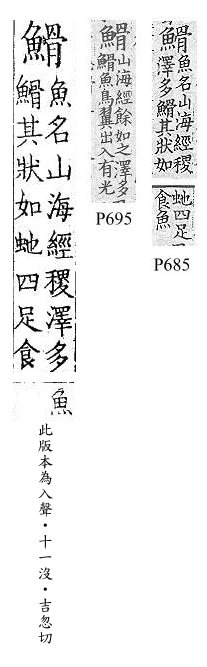 䱻
魚名山海經稷澤多
䱻其狀如虵四足食
魚
此版本為入聲・十一沒・吉忽切
䱻
山海經餘如之澤多
䱻魚鳥翼出入有光
P695
䱻
魚名山海經稷
澤多䱻其狀如
虵四足
食魚
P685